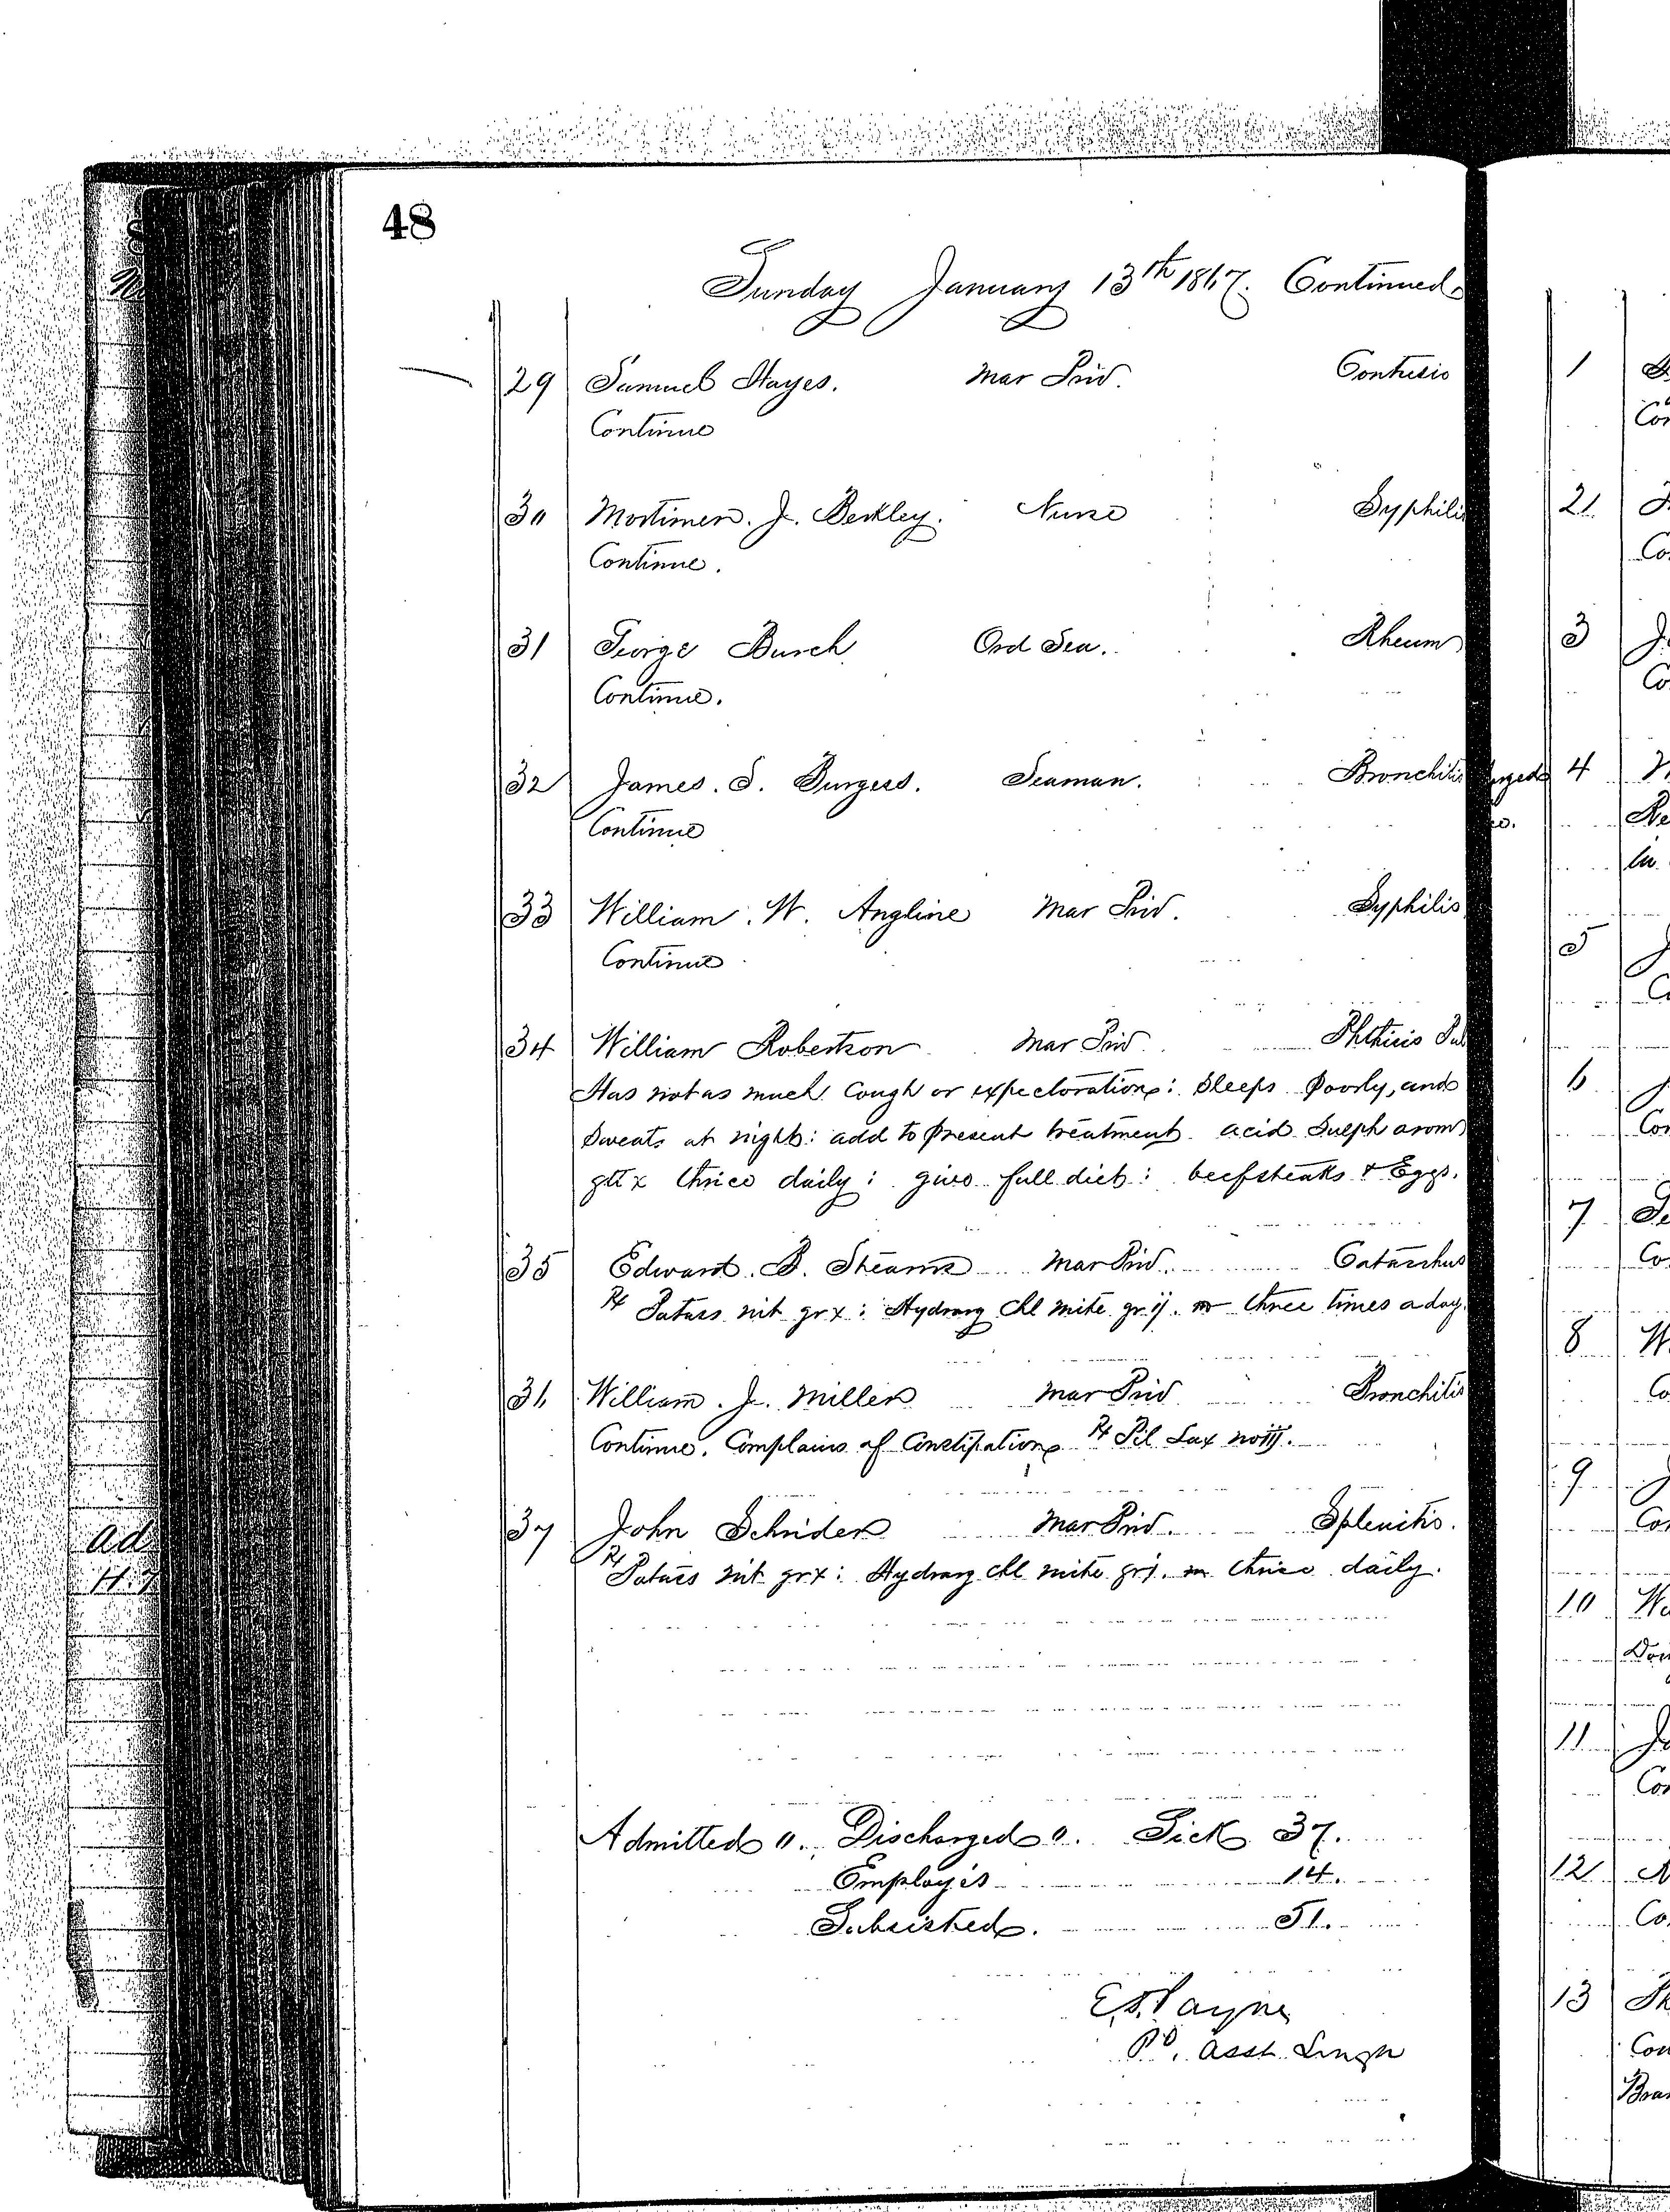 48
Sunday January 13th 1867. Continued
29 Samuel Hayes. Mar Priv. Contusio
Continue
30 Mortimer. J. Berkley. Nurse Syphilis
Continue.
31 George Burch Ord Sea. Rheum
Continue.
32 James. S. Burgess. Seaman. Bronchitis
Continue
33 William. W. Angline Mar Priv. Syphilis
Continue
34 William Robertson Mar Priv. Phthisis Pul
Has not as much Cough or expectoration: Sleeps Poorly, and
Sweats at night: add to present treatment acid Sulph arom
gtt x thrice daily: give full diet: beefsteaks & Eggs.
35 Edward. B. Stearns Mar Priv. Catarrhus
Rx Potass nit gr x: Hydrarg Chl mite gr ij. m three times a day.
36 William. J. Miller Mar Priv Bronchitis
Continue. Complains of Constipation Rx Pil Lax no iij.
37 John Schrider Mar Priv. Splenitis.
Rx Potass nit gr x: Hydrarg Chl mite gr j. m thrice daily.
Admitted 0. Discharged 0. Sick 37.
Employés 14.
Subsisted. 51.
E.S. Payne
Pd. Asst. Surgn
1
Co
2
Co
3
Co
4
5
6
Co
7
Co
8
Co
9
Co
10
11
Co
12
Co
13
Con